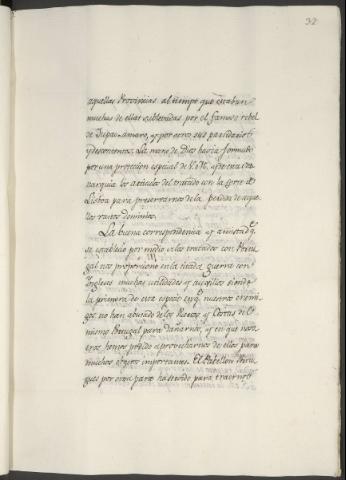 32
aquellas Provincias al tiempo que estaban
muchas de ellas sublevadas por el famoso rebel
de Tupac-amaro, y por otro sus partidarios
y descontentos. La mano de Dios hacia formar
por una proteccion especial de V. M. y de su Mo
narquia los articulos del tratado con la corte de
Lisboa para preservarnos de la perdida de aque
llos vastos dominios.
La buena correspondencia y amistad q.
se estableció por medio de los tratados con Portu
gal nos proporcionó en la citada guerra con
Ingleses muchas utilidades y auxilios siendo
la primera de esta especie en q. nuestros enemi
gos no han abusado de los Puertos y Costas del
mismo Portugal para dañarnos, y en que noso
tros hemos podido aprovecharnos de ellos para
muchos objetos importantes. El Pabellon Portu
gues por otra parte ha servido para traernos